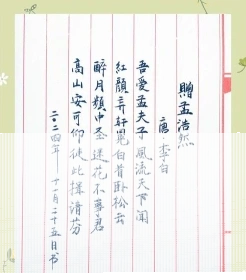 贈孟浩然
唐 李白
吾愛孟夫子 風流天下聞
紅顏弃軒冕 白首卧松云
醉月頻中圣 迷花不事君
高山安可仰 徒此揖清芬
二〇二四年 十一月二十五日书